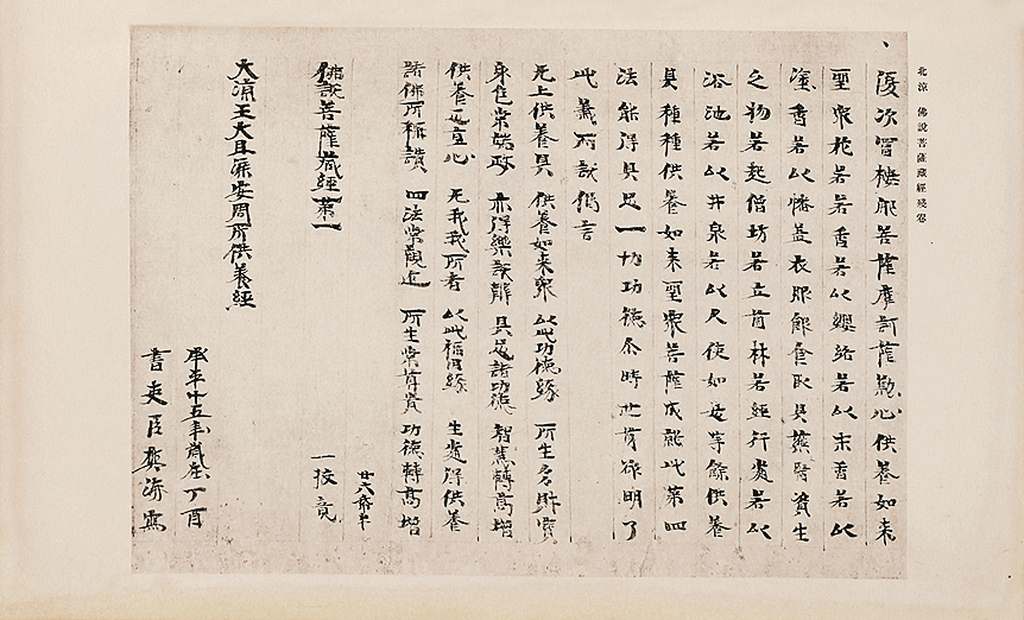 北涼 佛說菩薩藏經殘卷
復次冒樓耶菩薩摩訶薩懃心供養如來
聖眾花若香若以纓絡若以末香若以
塗香若以幡蓋衣服飲食臥具醫資生
之物若起僧坊若立薗林若經行處若以
浴池若以井泉若以尺使如是等餘供養
具種種供養如來聖眾菩薩成就此第四
法能得具足一切功德尒時世尊欲明了
此義而說偈言
无上供養具 供養如來眾 以此功德緣 所生多財寶
身色常端政 亦得樂說辯 具足諸功德 智慧轉高增
供養正直心 无我我所者 以此福因緣 生處得供養
諸佛所稱讚 四法常親近 所生常尊貴 功德轉高增
廿六帋半
佛說菩薩藏經第一
一校竟
大涼王大且渠安周所供養經
承平十五年歲在丁酉
書吏臣樊濟寫